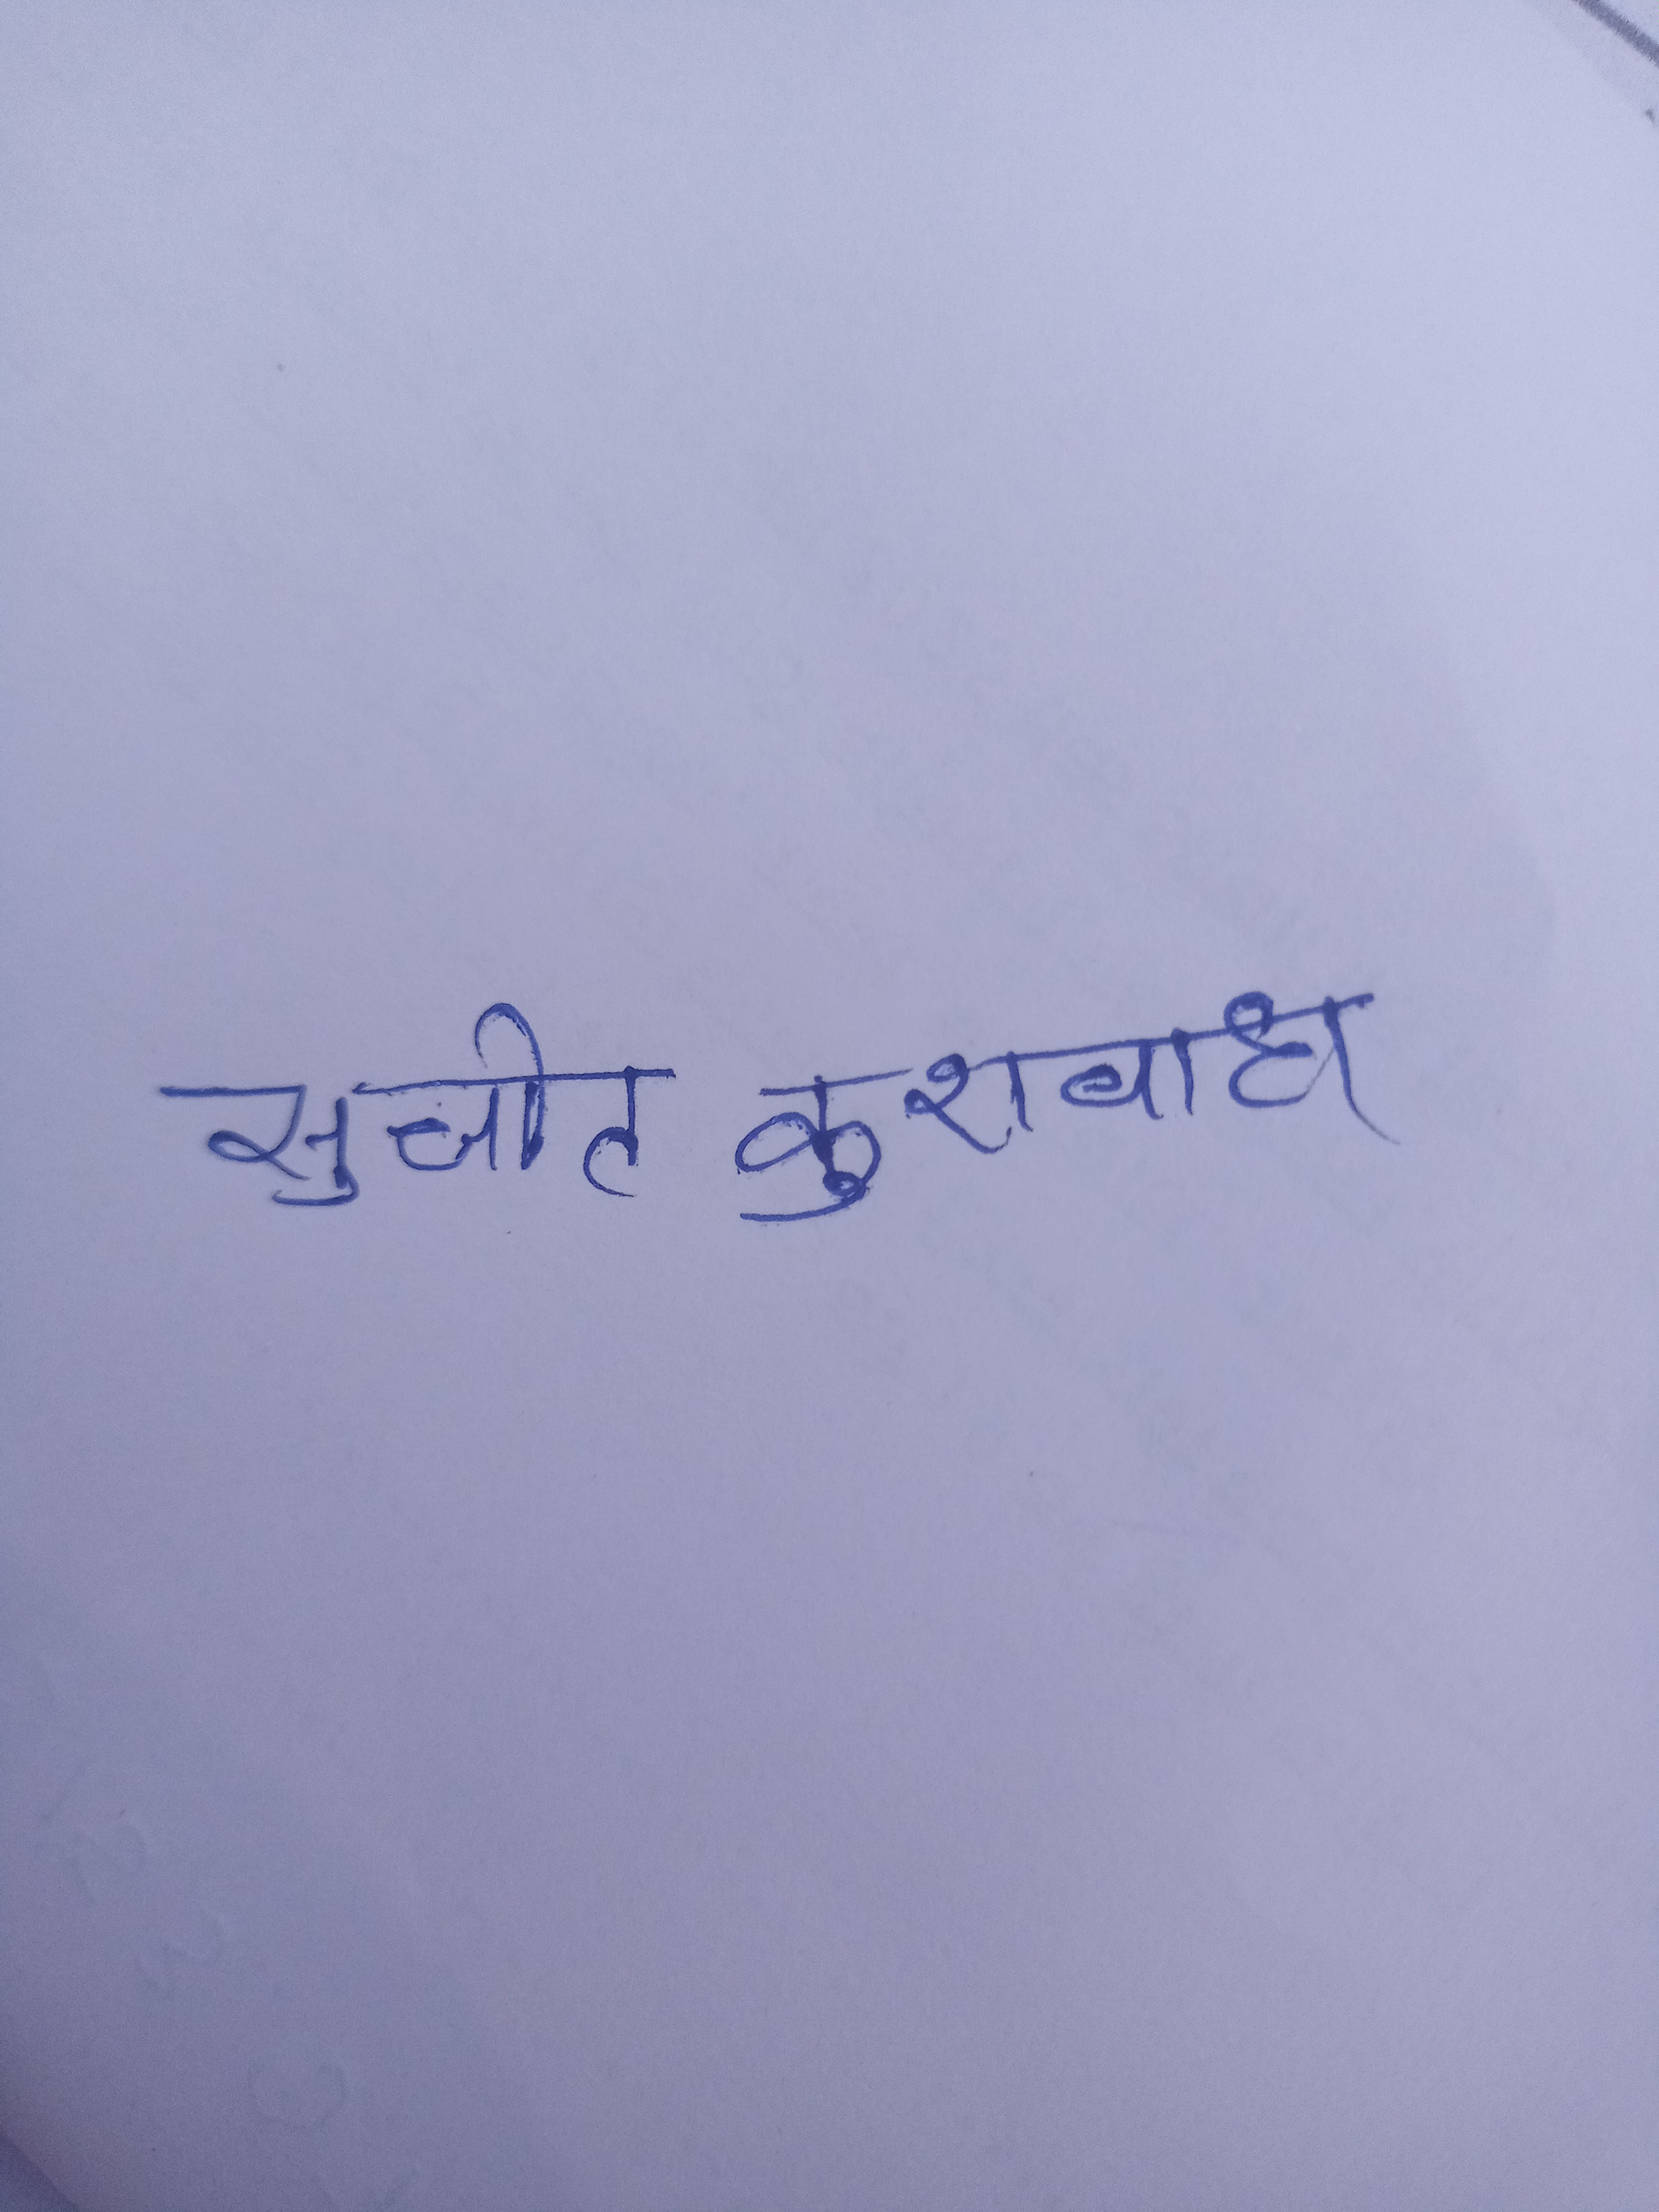 सुजीत कुशवाहा